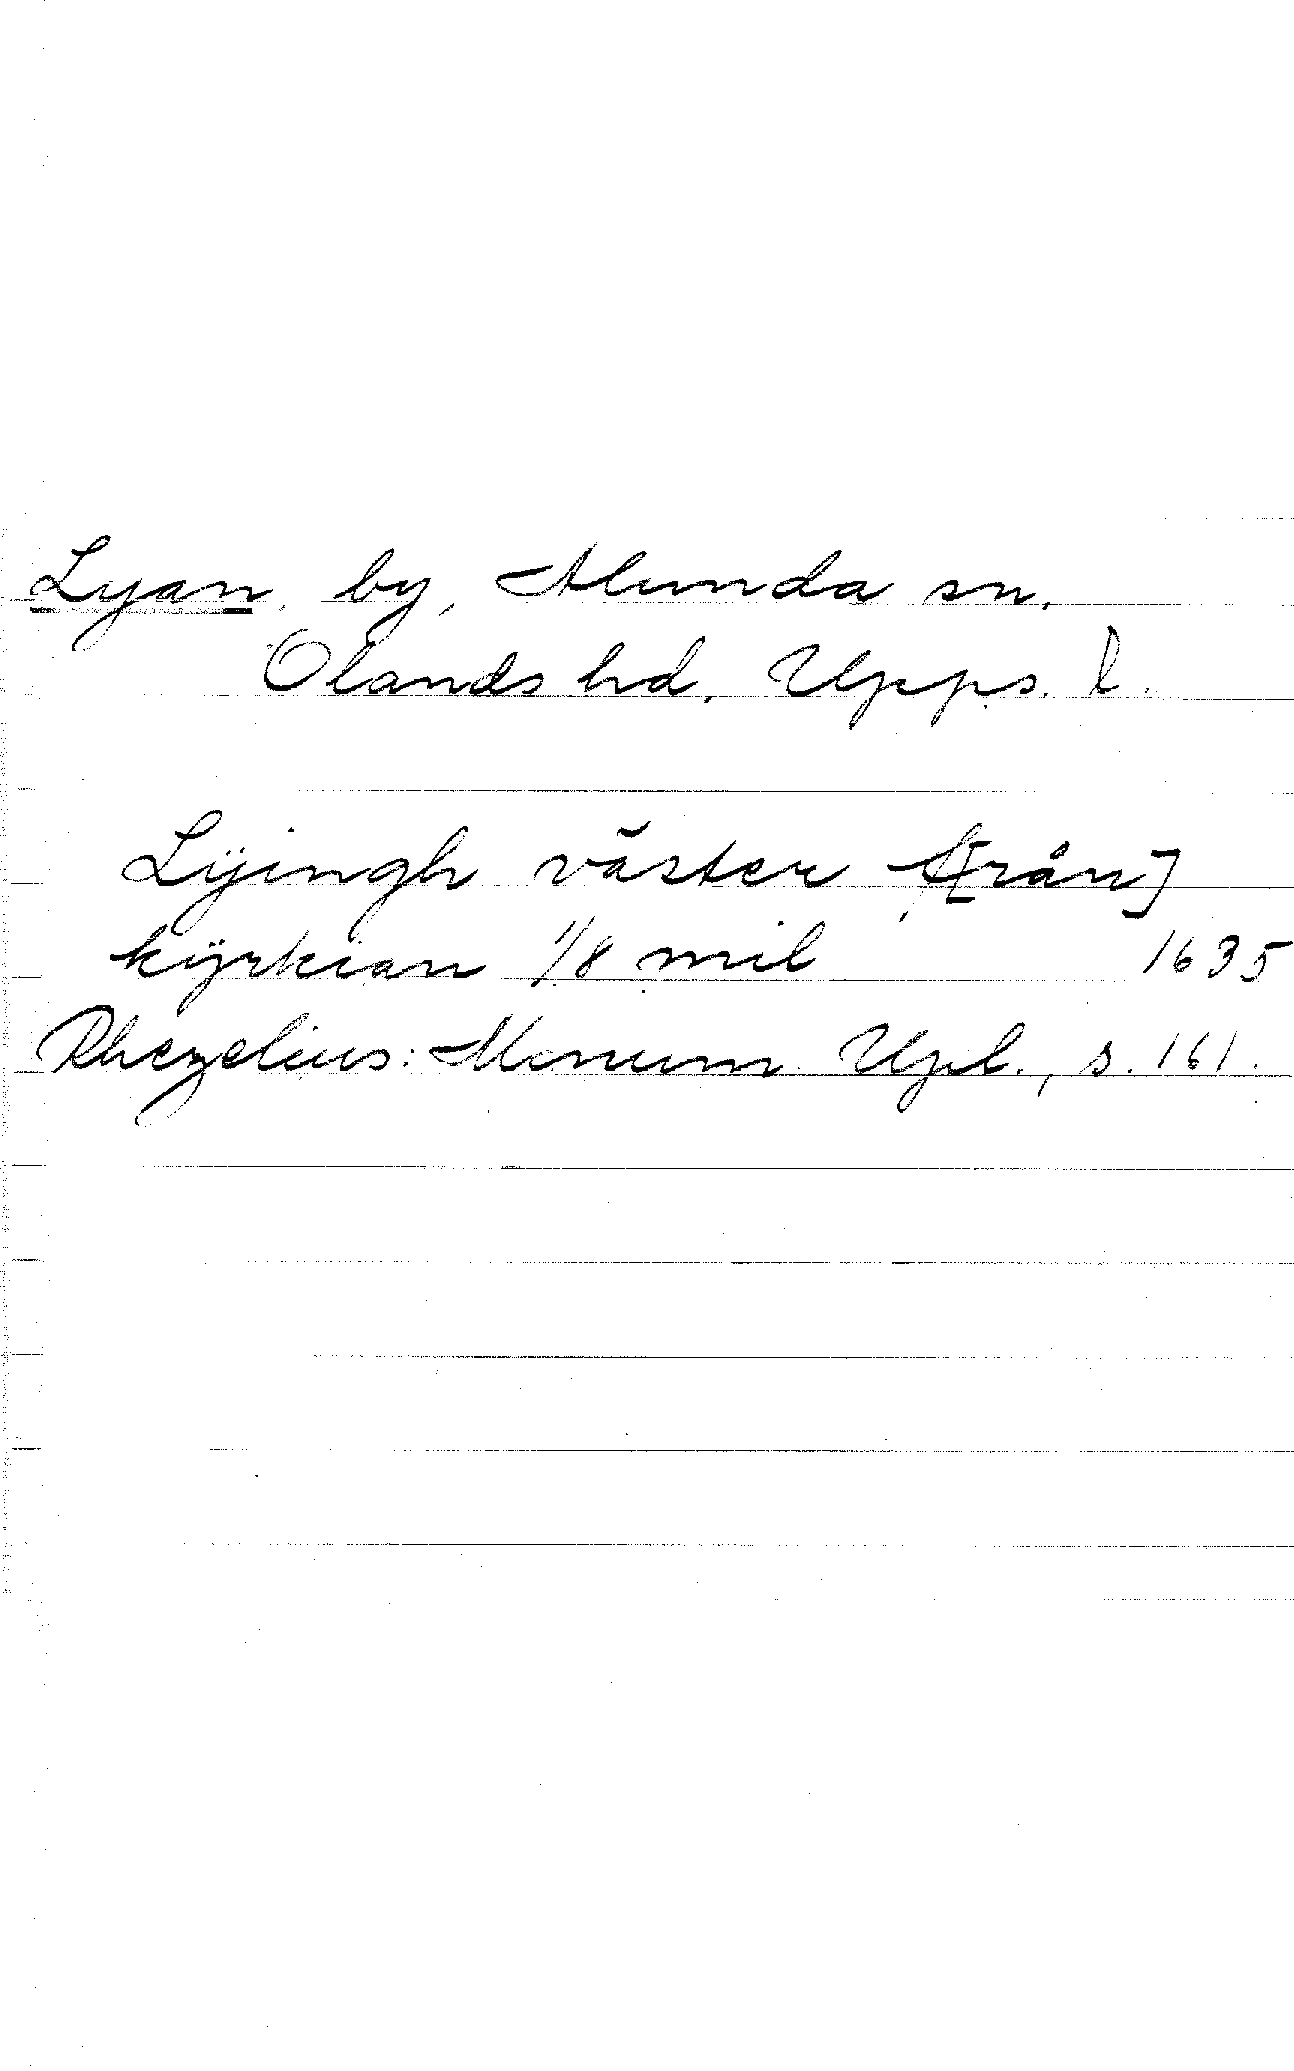 Lyan, by, Alunda sn.
Olands hd, Upps. l.
Lÿingh väster f[rån]
kÿrkian 1/8 mil 1635
Rhezelius: Monum. Upl., s. 161.